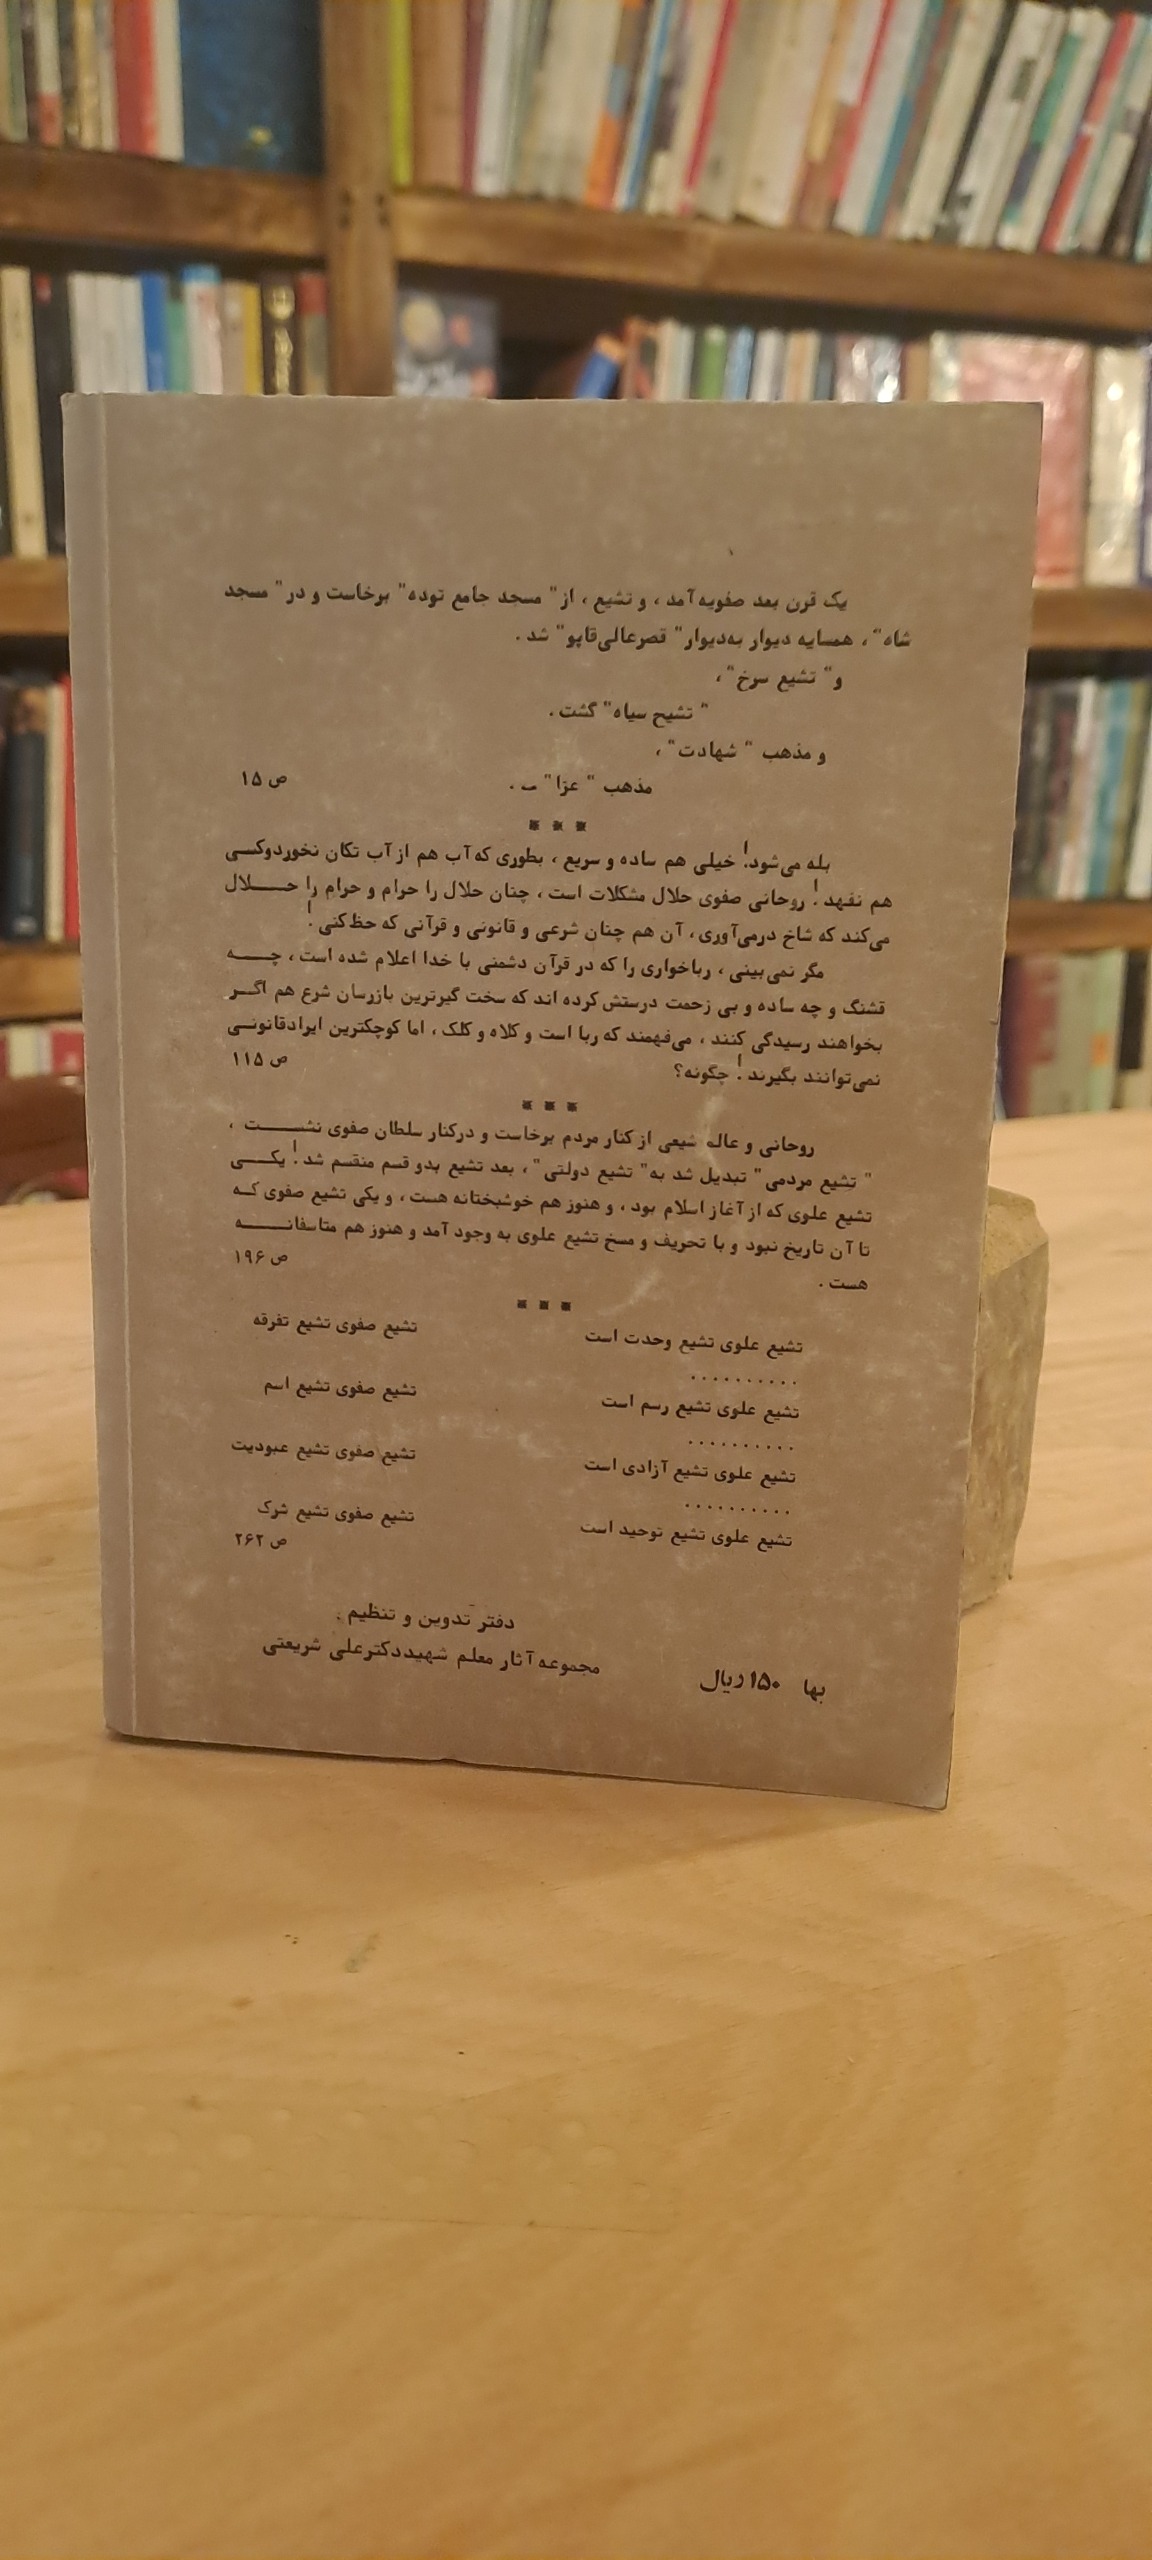 یک قرن بعد صفویه آمد ، و تشیع ، از " مسجد جامع توده " برخاست و در " مسجد
شاه " ، همسایه دیوار به‌دیوار " قصرعالی‌قاپو " شد .
و " تشیع سرخ " ،
" تشیح سیاه " گشت .
و مذهب " شهادت " ،
مذهب " عزا " .
ص ۱۵
بله می‌شود! خیلی هم ساده و سریع ، بطوری که آب هم از آب تکان نخوردوکسی
هم نفهد ! روحانی صفوی حلال مشکلات است ، چنان حلال را حرام و حرام را حلال
می‌کند که شاخ درمی‌آوری ، آن هم چنان شرعی و قانونی و قرآنی که حظ‌کنی !
مگر نمی‌بینی ، رباخواری را که در قرآن دشمنی با خدا اعلام شده است ، چه
قشنگ و چه ساده و بی زحمت درستش کرده اند که سخت گیرترین بازرسان شرع هم اگر
بخواهند رسیدگی کنند ، می‌فهمند که ربا است و کلاه و کلک ، اما کوچکترین ایرادقانونی
نمی‌توانند بگیرند ! چگونه؟
ص ۱۱۵
روحانی و عالم شیعی از کنار مردم برخاست و درکنار سلطان صفوی نشست ،
" تشیع مردمی " تبدیل شد به " تشیع دولتی " ، بعد تشیع بدو قسم منقسم شد ! یکی
تشیع علوی که از آغاز اسلام بود ، و هنوز هم خوشبختانه هست ، و یکی تشیع صفوی که
تا آن تاریخ نبود و با تحریف و مسخ تشیع علوی به وجود آمد و هنوز هم متاسفانه
هست .
ص ۱۹۶
تشیع علوی تشیع وحدت است تشیع صفوی تشیع تفرقه
. . . . . . . . . .
تشیع علوی تشیع رسم است تشیع صفوی تشیع اسم
. . . . . . . . . .
تشیع علوی تشیع آزادی است تشیع صفوی تشیع عبودیت
. . . . . . . . . .
تشیع علوی تشیع توحید است تشیع صفوی تشیع شرک
ص ۲۶۲
دفتر تدوین و تنظیم .
مجموعه آثار معلم شهیددکترعلی شریعتی
بها ۱۵۰ ریال